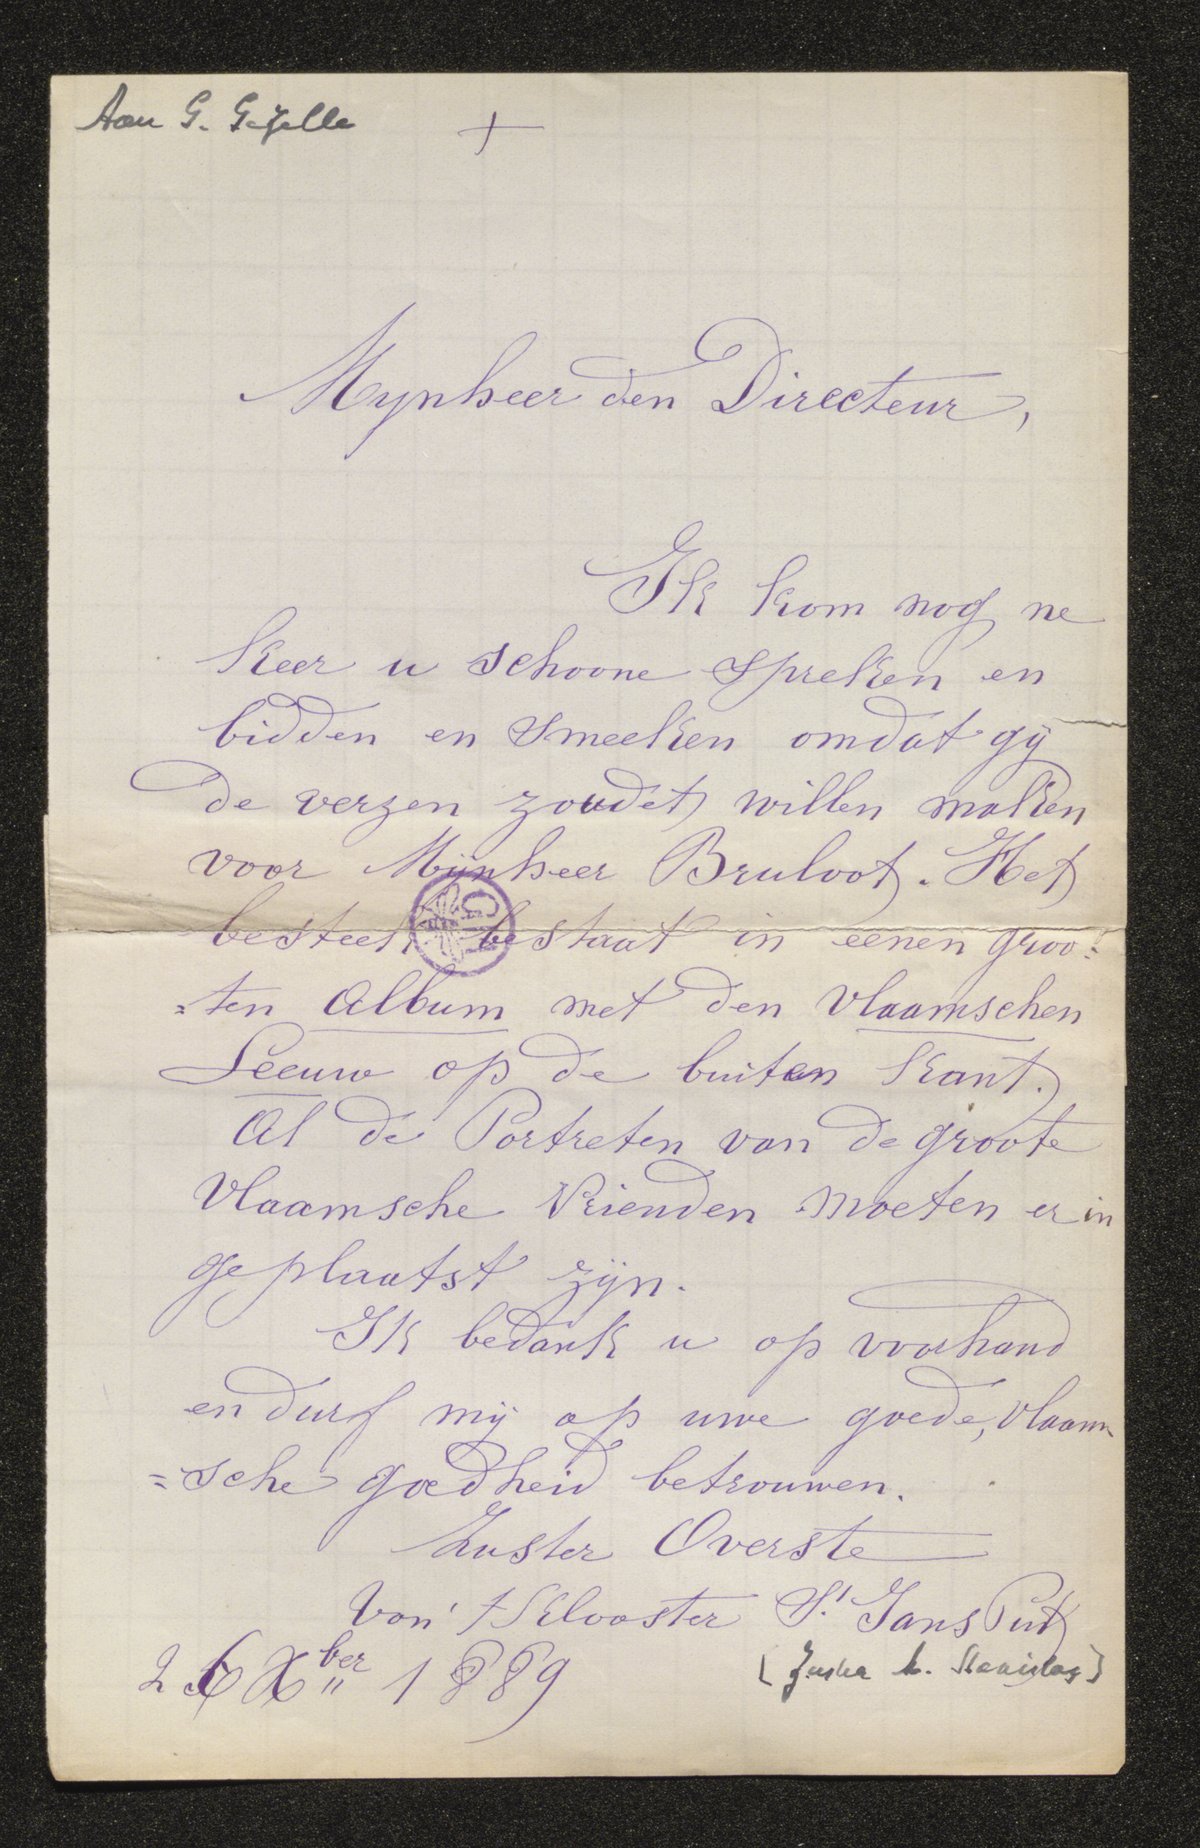 Aan G. Gezelle
+
Mynheer den Directeur,
Ik kom nog ne
keer u schoone spreken en
bidden en smeeken omdat gij
de verzen zoudet willen maken
voor Mijnheer Bruloot. Het
besteek bestaat in eenen groo=
=ten Album met den Vlaamschen
Leeuw op de buiten kant.
Al de Portreten van de groote
Vlaamsche Vrienden moeten er in
geplaatst zijn.
Ik bedank u op voorhand
en durf mij op uwe goede, vlaam
=sche goedheid betrouwen.
Zuster Overste
Van 't Klooster St Jans Put
26 Xber 1889
[Zuster M. Stanislas]